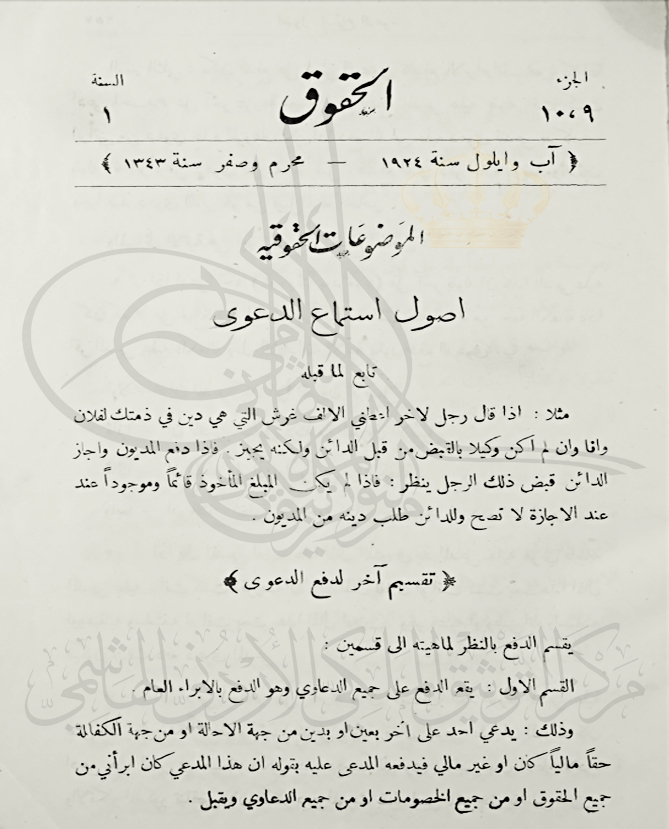 الجزء
١٠،٩
الحقوق
السنة
١
﴿ آب وايلول سنة ١٩٢٤ — محرم وصفر سنة ١٣٤٣ ﴾
الموضوعات الحقوقيه
اصول استماع الدعوى
تابع لما قبله
مثلا : اذا قال رجل لاخر اعطني الالف غرش التي هي دين في ذمتك لفلان
وانا وان لم اكن وكيلا بالقبض من قبل الدائن ولكنه يجيز . فاذا دفع المديون واجاز
الدائن قبض ذلك الرجل ينظر : فاذا لم يكن المبلغ المأخوذ قائماً وموجوداً عند
عند الاجازة لا تصح وللدائن طلب دينه من المديون .
﴿ تقسيم آخر لدفع الدعوى ﴾
يقسم الدفع بالنظر لماهيته الى قسمين :
القسم الاول : يقع الدفع على جميع الدعاوي وهو الدفع بالابراء العام .
وذلك : يدعي احد على آخر بعين او بدين من جهة الاحالة او من جهة الكفالة
حقاً مالياً كان او غير مالي فيدفعه المدعى عليه بقوله ان هذا المدعي كان ابرأني من
جميع الحقوق او من جميع الخصومات او من جميع الدعاوي ويقبل .